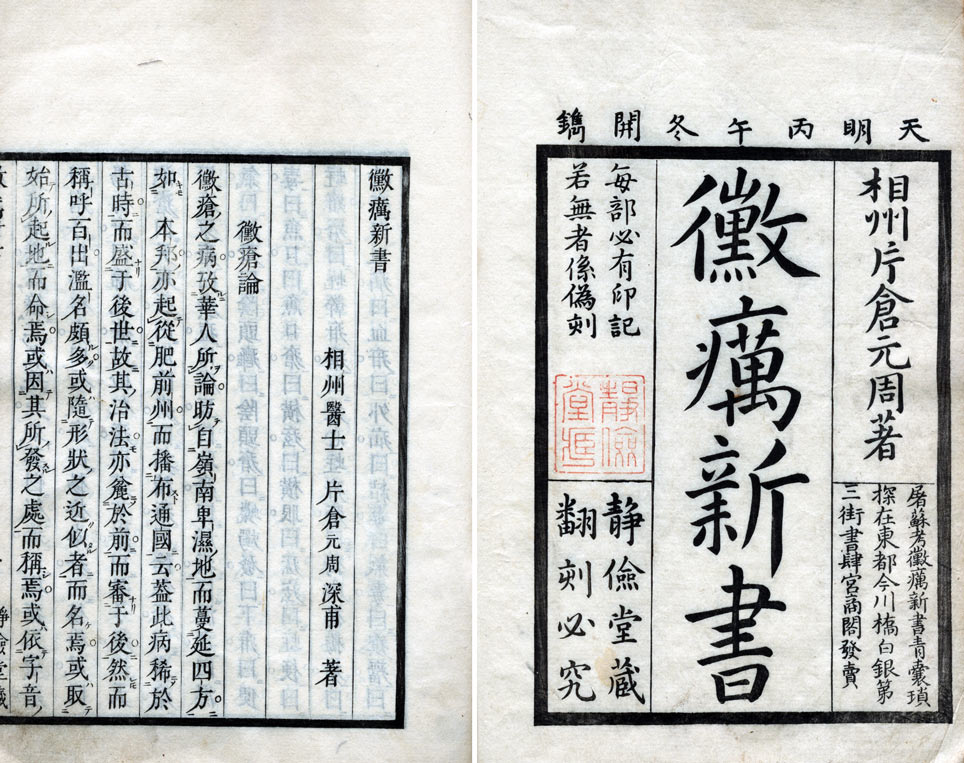 天明丙午冬開鐫
相州片倉元周著
屠蘇考黴癘新書青囊瑣
探在東都今川橋白銀第
三街書肆宮商閣發賣
黴癘新書
每部必有印記
若無者係偽刻
靜儉
堂
靜儉堂藏
翻刻必究
黴癘新書
相州醫士 片倉元周深甫 著
黴瘡論
黴瘡之病攷華人所論昉自嶺南卑濕地而蔓延四方
如 本邦亦起從肥前州而播布通國云葢此病稀於
古時而盛于後世故其治法亦麤於前而審于後然而
稱呼百出濫名頗多或隨形狀之近似者而名焉或取
始所起地而命焉或因其所發之處而稱焉或依字音